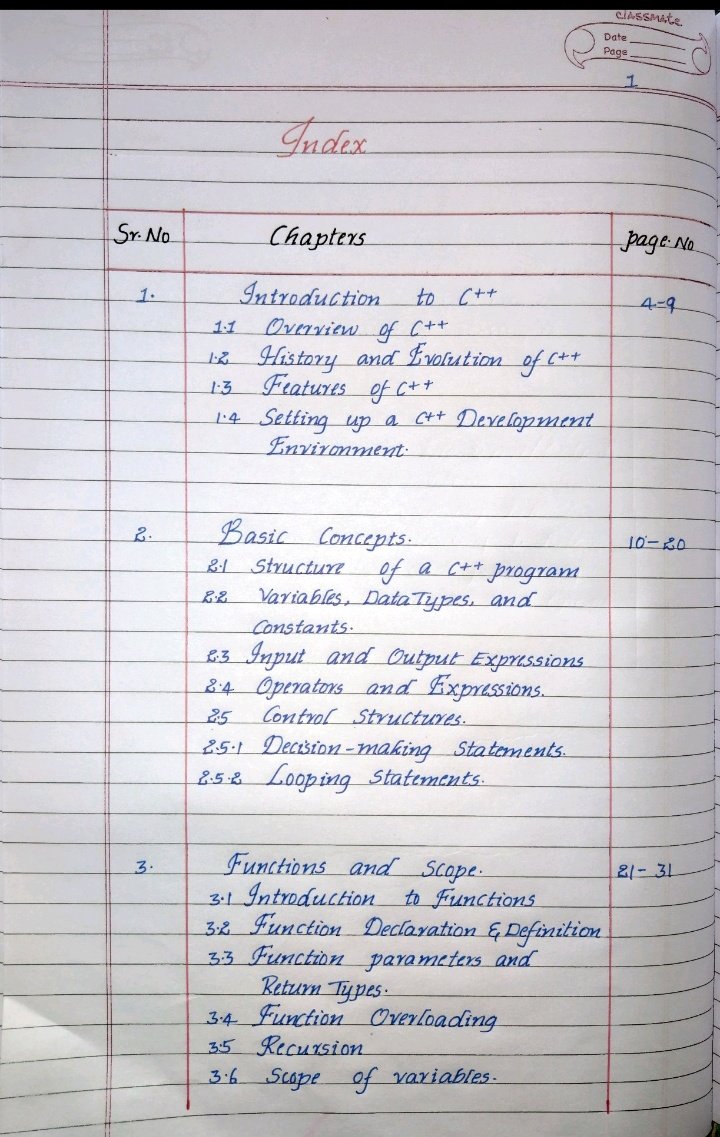 classmate
Date
Page
1
Index
Sr. No Chapters page. No
1. Introduction to C++ 4-9
1.1 Overview of C++
1.2 History and Evolution of C++
1.3 Features of C++
1.4 Setting up a C++ Development
Environment.
2. Basic Concepts. 10-20
2.1 Structure of a C++ program
2.2 Variables, Data Types, and
Constants.
2.3 Input and Output Expressions
2.4 Operators and Expressions.
2.5 Control Structures.
2.5.1 Decision-making Statements.
2.5.2 Looping Statements.
3. Functions and Scope. 21-31
3.1 Introduction to Functions
3.2 Function Declaration & Definition
3.3 Function parameters and
Return Types.
3.4 Function Overloading
3.5 Recursion
3.6 Scope of variables.